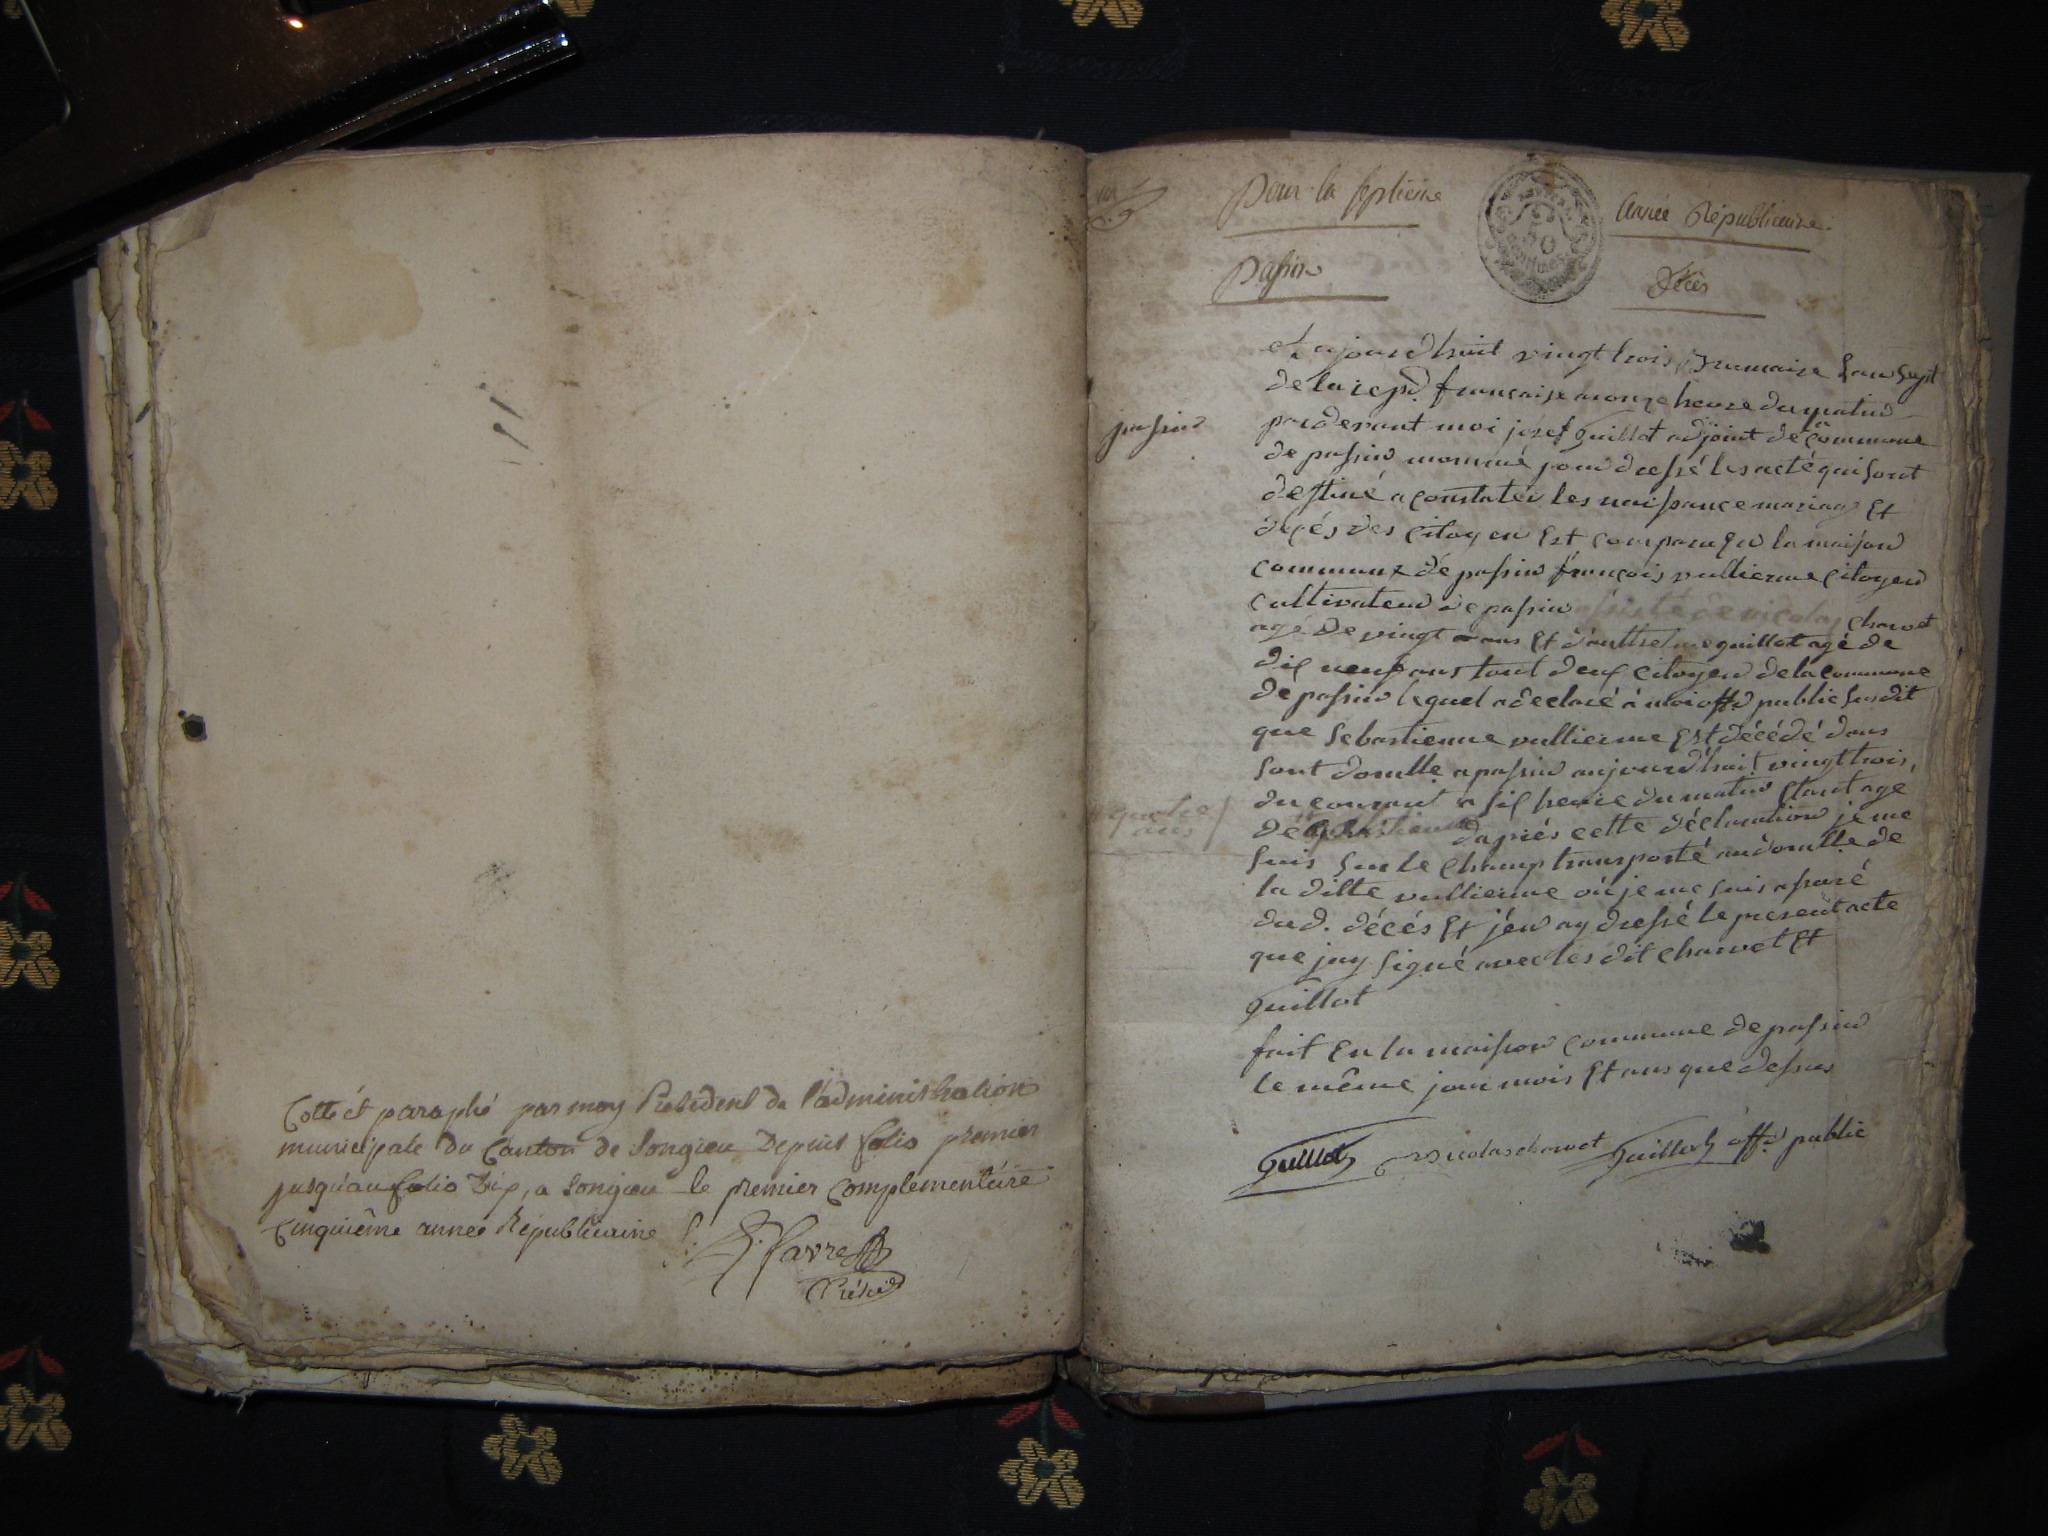 Cotté et paraphé par moy President de l'administration
municipale du Canton de Songieu Depuis folio premier
jusqu'au folio Dix, a Songieu le premier complementaire
Cinquième année Républicaine
Favre
Présid
Pour la septieme Année Républicaine.
50
Passin Décès
passin
et ajourdhuit vingt trois Brumaire lan sept
de la repd. française a onze heure du matin
pardevant moi josef Guillot adjoint de commune
de passin nommé pour dressé les acté qui sont
destiné a constater les naissance mariag et
décés des citoyen Est comparu En la maison
commune de passin françois vullierme citoyen
cultivateur de passin assisté de nicolas charvet
agé de vingt ans Et d'anthelme guillot agé de
dix neuf ans tout deux citoyen de la commune
de passin lequel a déclaré à moi offr public susdit
que Sebastienne vullierme Est décédé dans
sont domlle a passin aujourdhuit vingt trois
du courant a six heure du matin Etant agé
quatre
ans
de dapriés cette déclaration je me
suis sur le champ transporté au domlle de
la ditte vullierme où je me suis assuré
dud. décés Et j'en ay dressé le present acte
que jay signé avec les dit charvet Et
guillot
fait En la maison commune de passin
le même jour mois Et ans que dessus
Guillot Nicolas charvet Guillot offr public